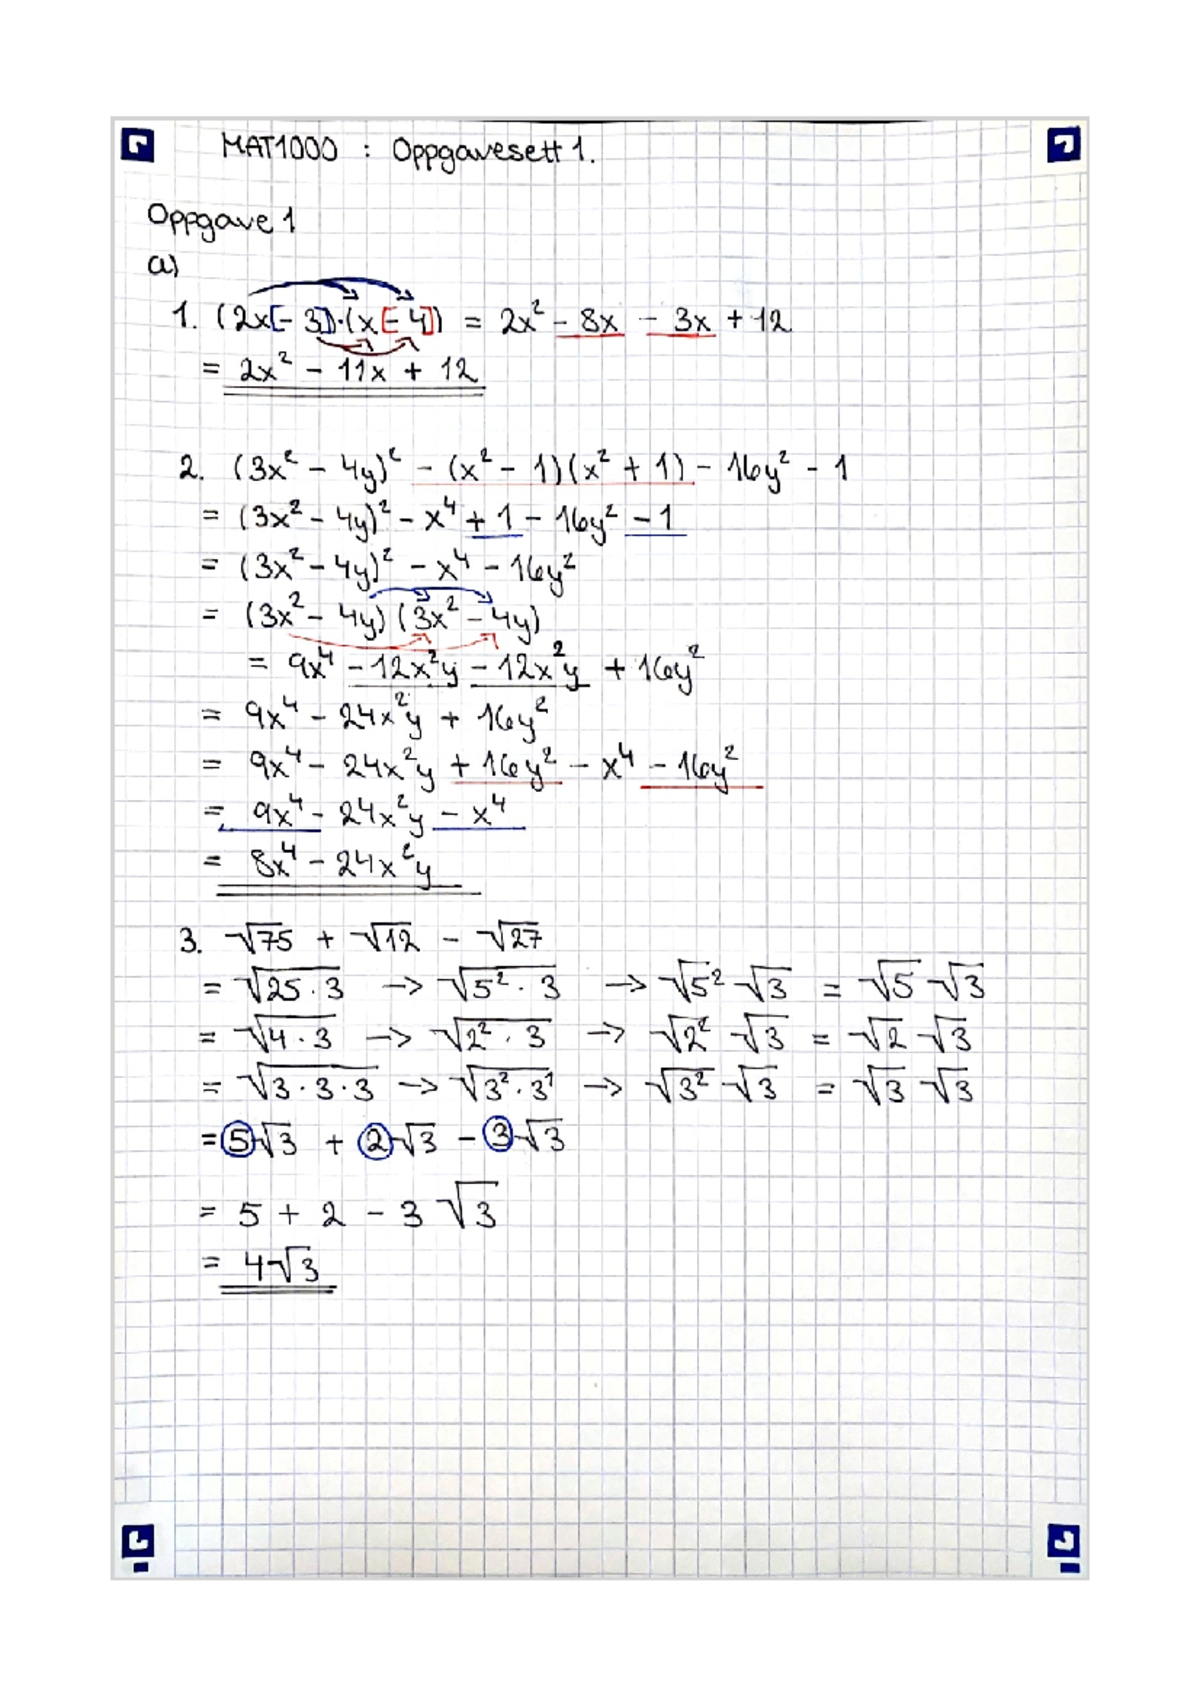 MAT1000 : Oppgavesett 1.
Oppgave 1
a)
1. (2x[-3])·(x[-4]) = 2x² - 8x - 3x + 12
= 2x² - 11x + 12
2. (3x² - 4y)² - (x² - 1)(x² + 1) - 16y² - 1
= (3x² - 4y)² - x⁴ + 1 - 16y² - 1
= (3x² - 4y)² - x⁴ - 16y²
= (3x² - 4y)(3x² - 4y)
= 9x⁴ - 12x²y - 12x²y + 16y²
= 9x⁴ - 24x²y + 16y²
= 9x⁴ - 24x²y + 16y² - x⁴ - 16y²
= 9x⁴ - 24x²y - x⁴
= 8x⁴ - 24x²y
3. √75 + √12 - √27
= √25·3 → √5²·3 → √5² √3 = √5 √3
= √4·3 → √2²·3 → √2² √3 = √2 √3
= √3·3·3 → √3²·3¹ → √3² √3 = √3 √3
= 5√3 + 2√3 - 3√3
= 5 + 2 - 3 √3
= 4√3